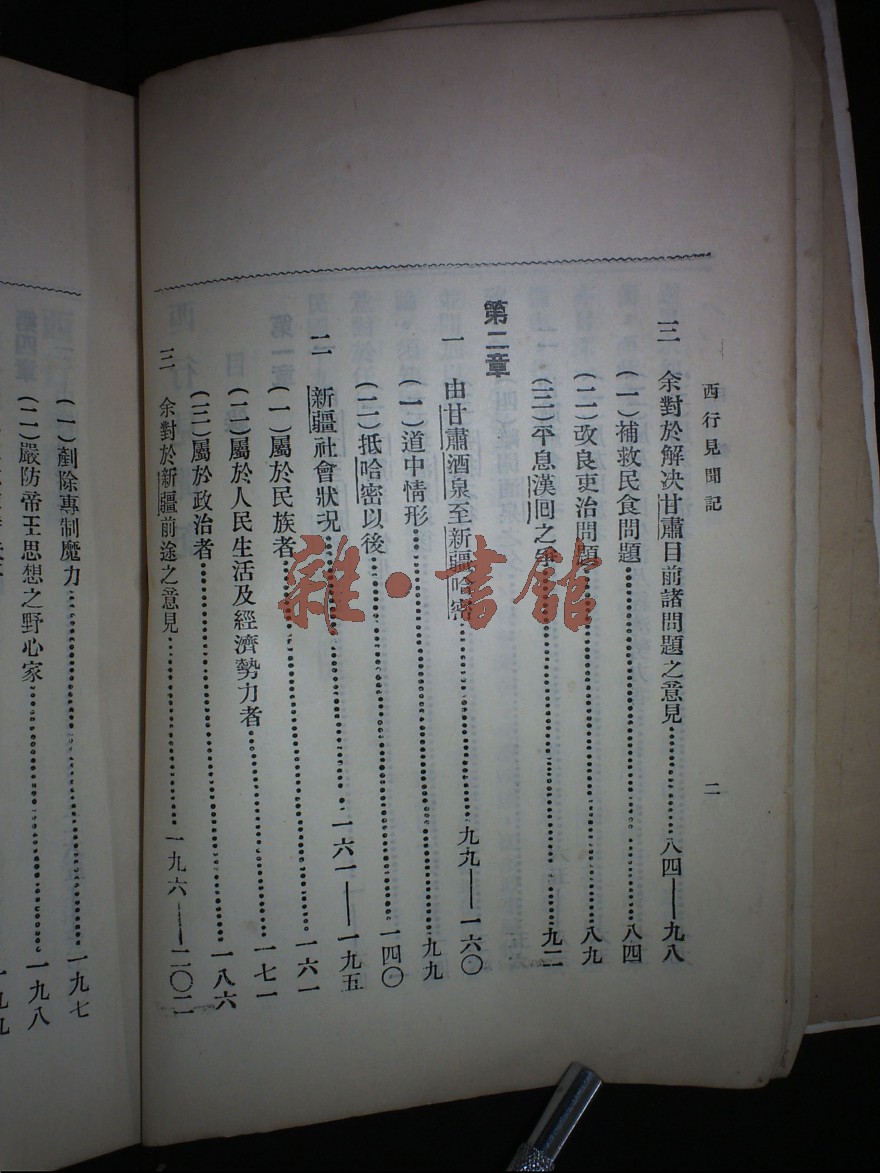 西行見聞記
二
三 余對於解决甘肅目前諸問題之意見⋯⋯八四——九八
(一)補救民食問題⋯⋯八四
(二)改良吏治問題⋯⋯八九
(三)平息漢回之爭⋯⋯九二
第二章
一 由甘肅酒泉至新疆哈密⋯⋯九九——一六〇
(一)道中情形⋯⋯九九
(二)抵哈密以後⋯⋯一四〇
二 新疆社會狀况⋯⋯一六一——一九五
(一)屬於民族者⋯⋯一六一
(二)屬於人民生活及經濟勢力者⋯⋯一七一
(三)屬於政治者⋯⋯一八六
三 余對於新疆前途之意見⋯⋯一九六——二〇二
(一)剷除專制魔力⋯⋯一九七
(二)嚴防帝王思想之野心家⋯⋯一九八
雜·書館